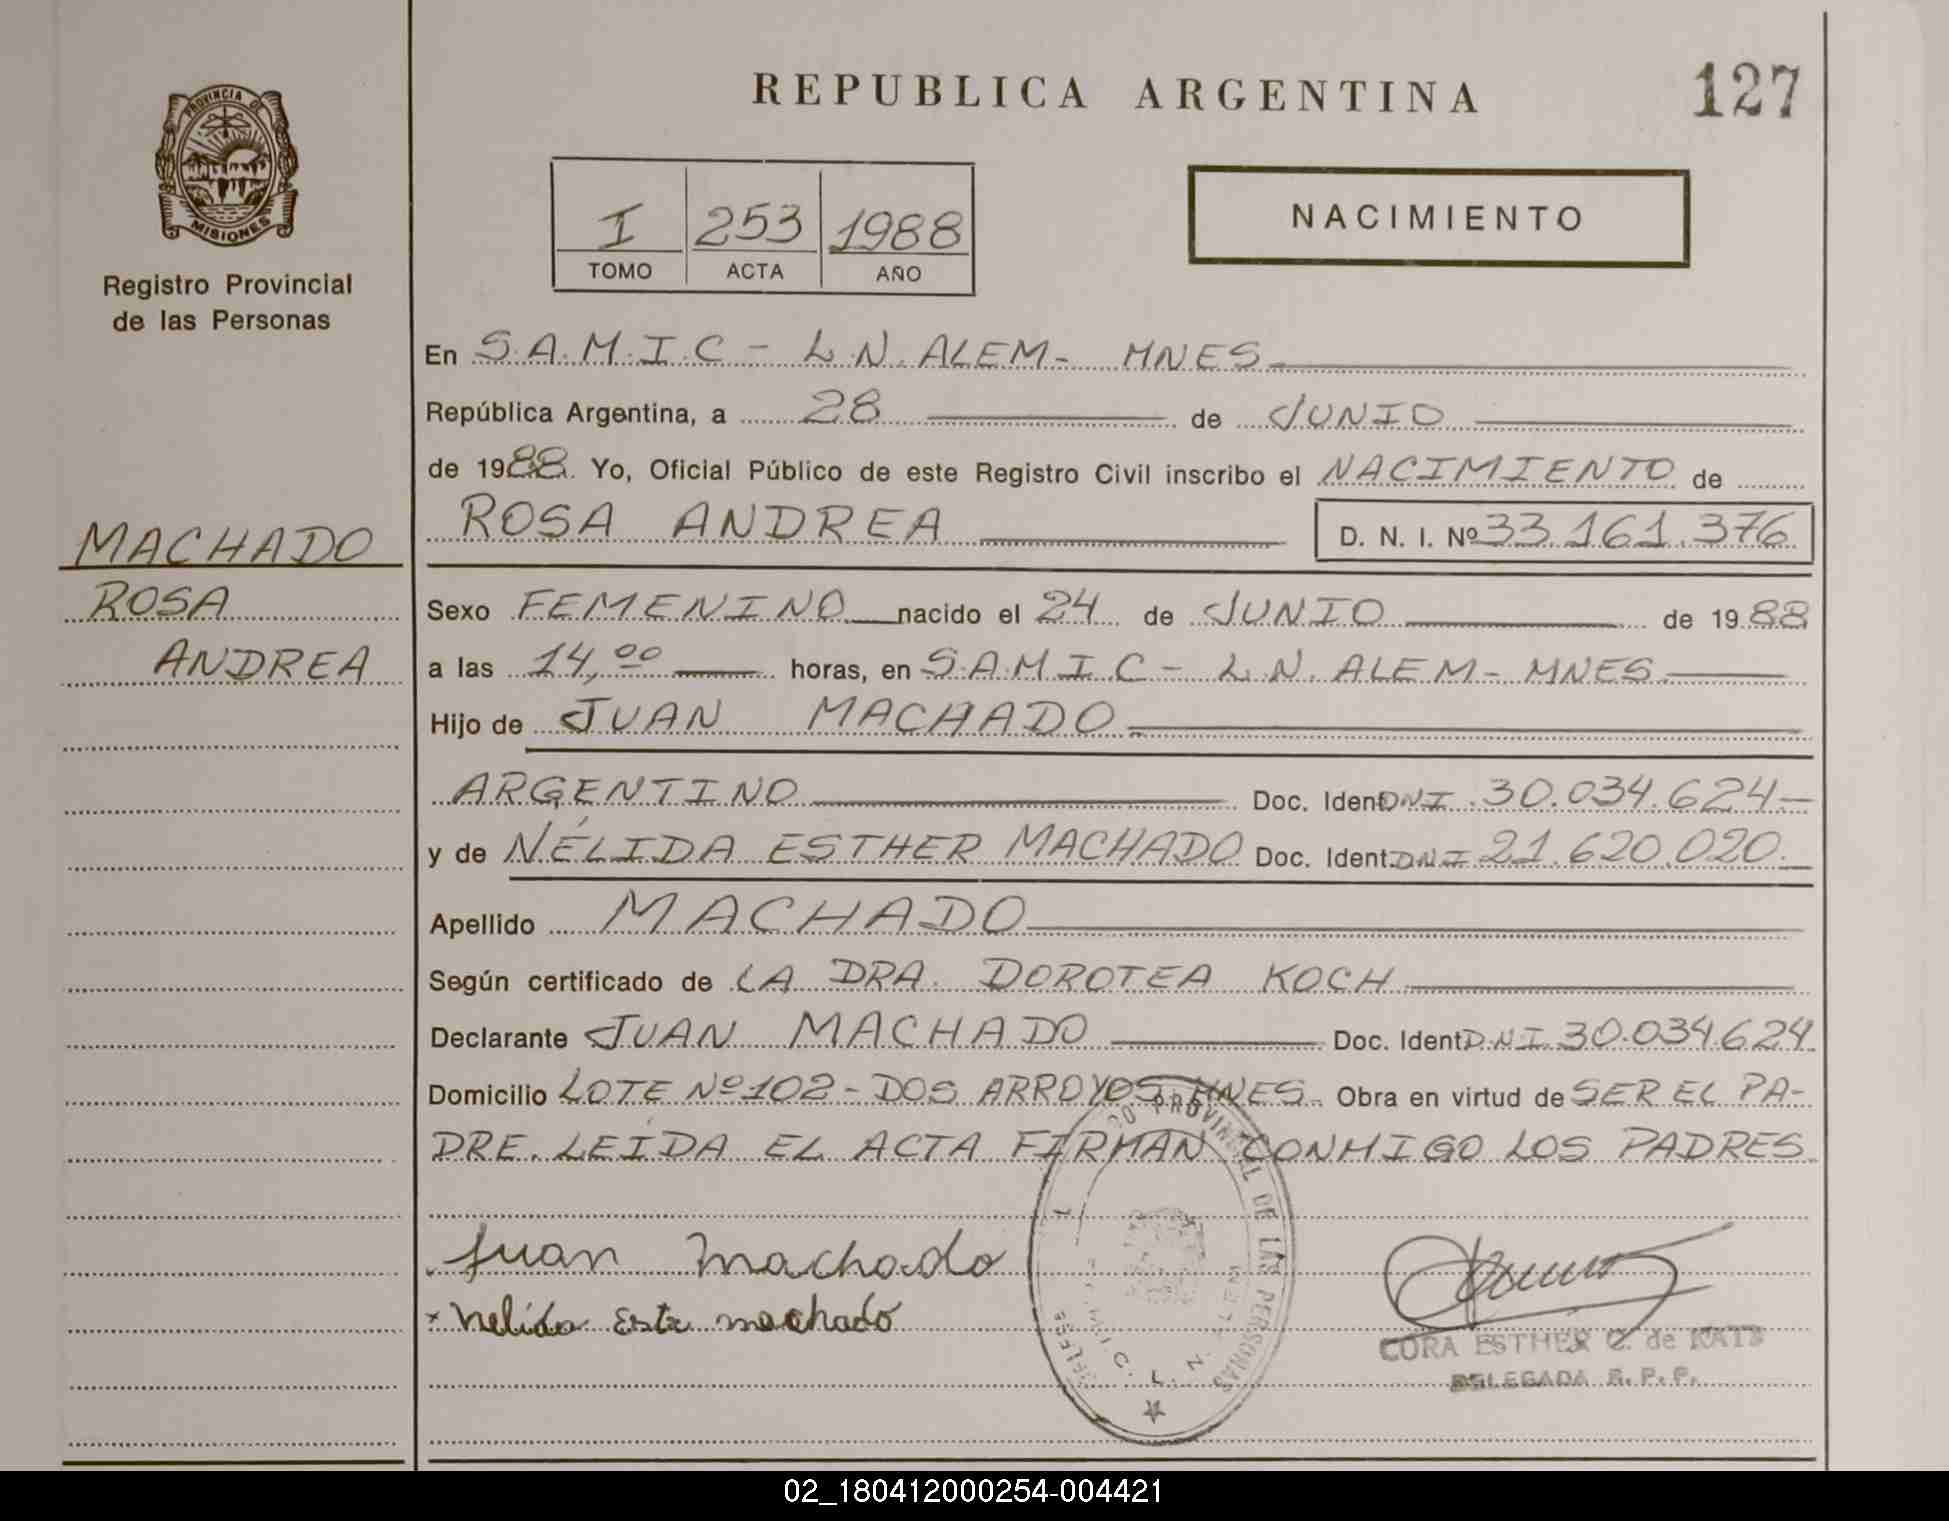 REPUBLICA ARGENTINA
127
PROVINCIA DE
MISIONES
Registro Provincial
de las Personas
I 253 1988
TOMO ACTA AÑO
NACIMIENTO
En S.A.M.I.C - L.N. ALEM - MNES
República Argentina, a 28 de JUNIO
de 1988. Yo, Oficial Público de este Registro Civil inscribo el NACIMIENTO de
ROSA ANDREA D. N. I. Nº 33.161.376
MACHADO
ROSA
ANDREA
Sexo FEMENINO nacido el 24 de JUNIO de 1988
a las 14,00 horas, en S.A.M.I.C - L.N. ALEM - MNES
Hijo de JUAN MACHADO
ARGENTINO Doc. Ident DNI 30.034.624-
y de NÉLIDA ESTHER MACHADO Doc. Ident. DNI 21.620.020.
Apellido MACHADO
Según certificado de LA DRA. DOROTEA KOCH
Declarante JUAN MACHADO Doc. Ident D.N.I. 30.034.624
Domicilio LOTE Nº 102 - DOS ARROYOS MNES. Obra en virtud de SER EL PA-
DRE. LEÍDA EL ACTA FIRMAN CONMIGO LOS PADRES
Juan Machado
x Nelida Este machado
PROVINCIAL DE LAS PERSONAS
CORA ESTHER C. de KATZ
DELEGADA R. P. P.
02_180412000254-004421